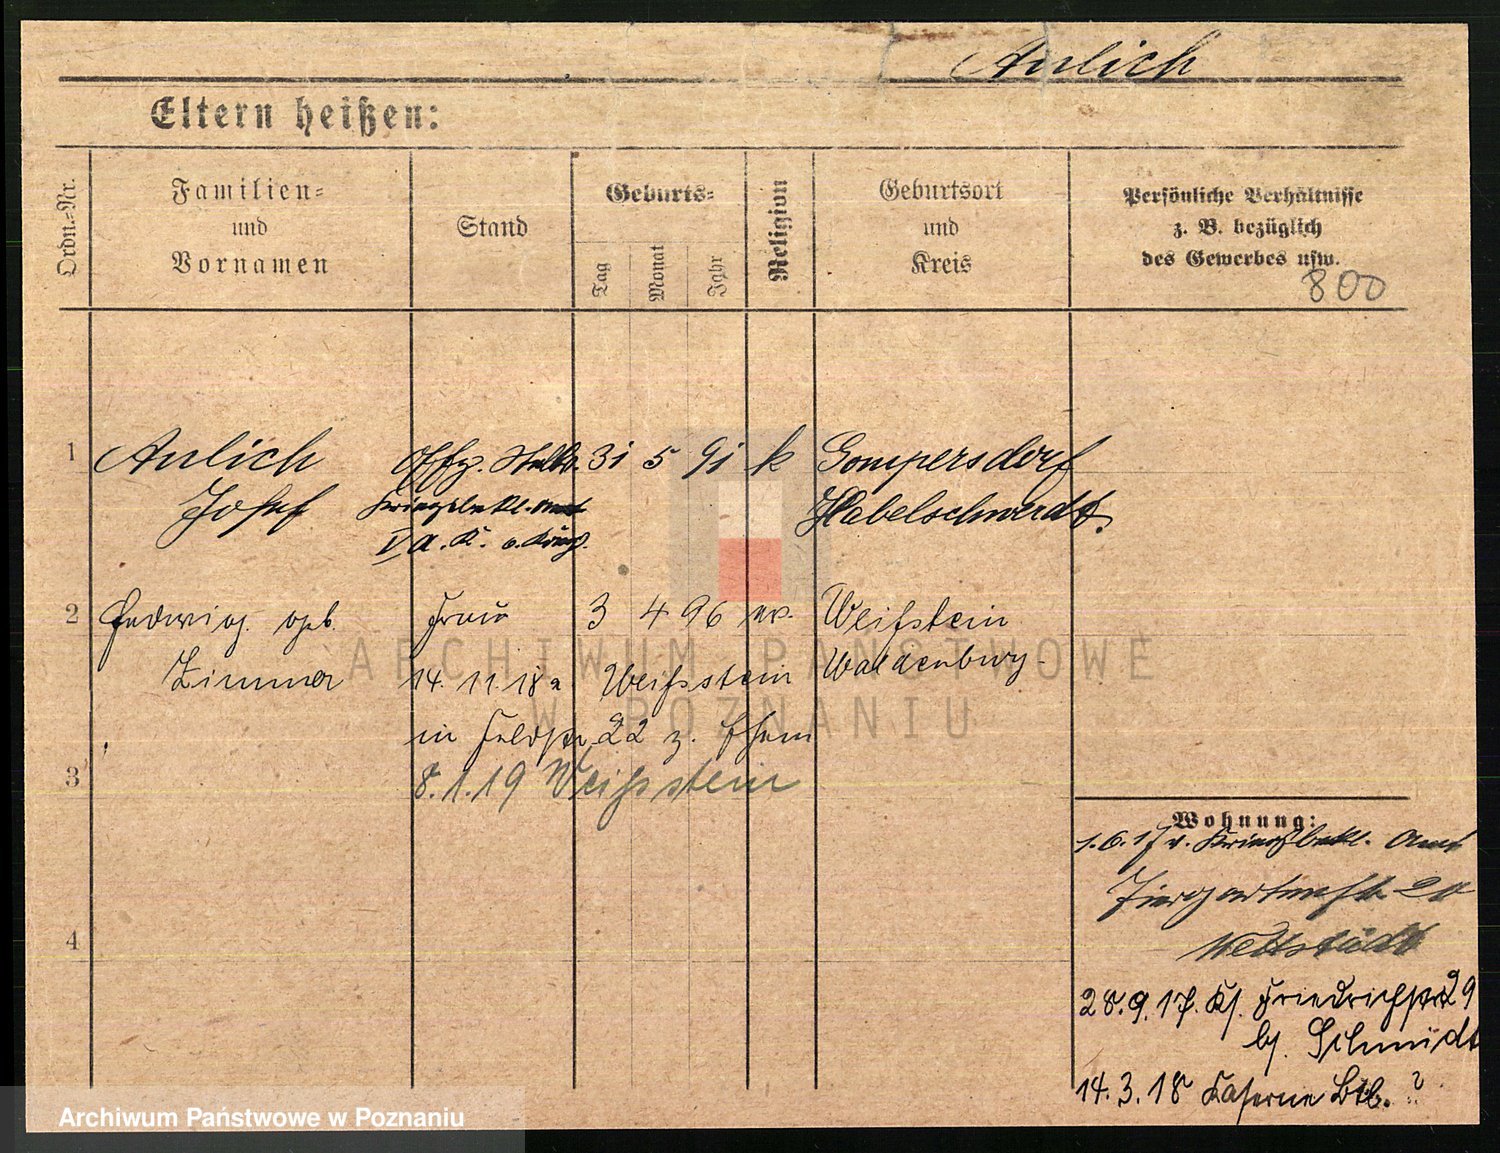 Anlich
Eltern heißen:
Ordn.=Nr.
Familien=
und
Vornamen
Stand
Geburts=
Tag
Monat
Jahr
Religion
Geburtsort
und
Kreis
Persönliche Verhältnisse
z. B. bezüglich
des Gewerbes usw.
800
1 Anlich Offz. Stellv. 31 5 91 k Gompersdorf
Josef Kriegsbekl. Amt Habelschwerdt.
V A. K.
2 Hedwig geb. Frau 3 4 96 ev. Weißstein
Zimmer 14.11.18 Weißstein Waldenburg
in Feldstr. 22 z. Ehem
3 8.1.19 Weißstein
4
Wohnung:
1.6.17 v. Kriegsbekl. Amt
Tiergartenstr. 20
28.9.17. Kf. Friedrichstr 29
b/. Schmidt
14.3.18 Kaserne Btl. ?
ARCHIWUM PAŃSTWOWE
W POZNANIU
Archiwum Państwowe w Poznaniu